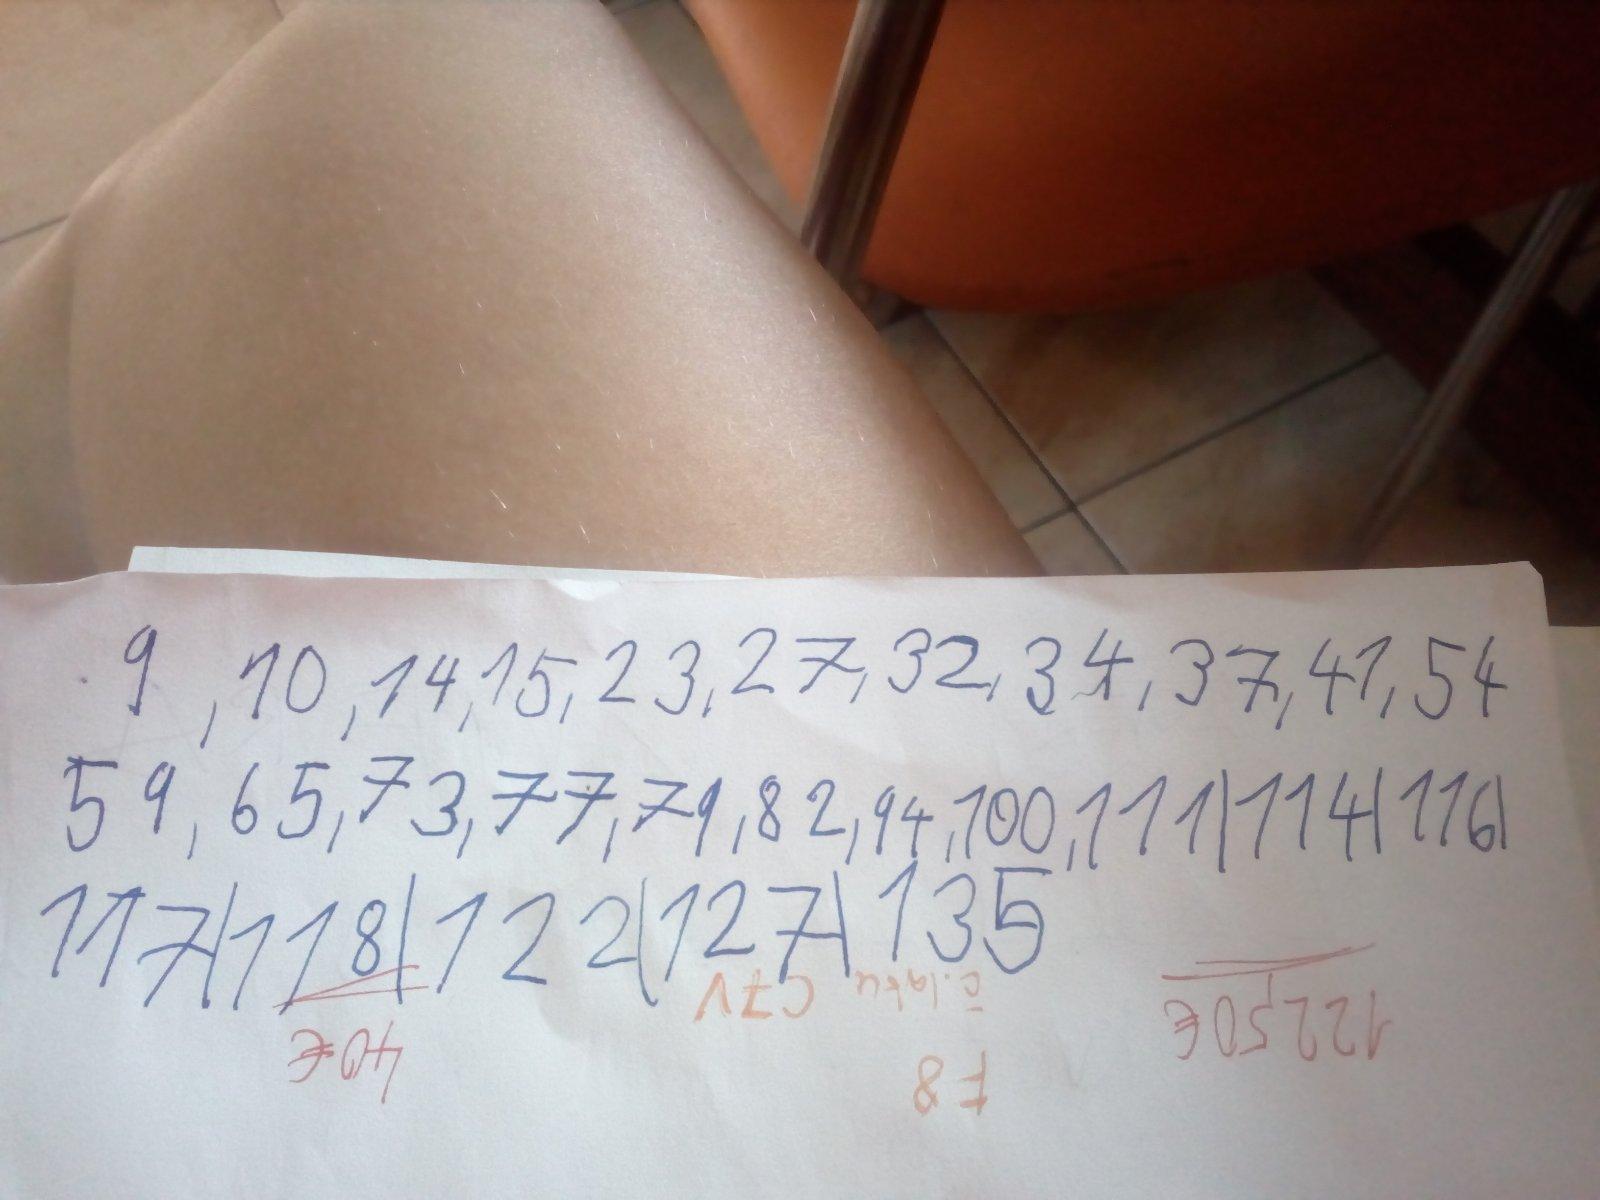 9, 10, 14, 15, 23, 27, 32, 34, 37, 41, 54
59, 65, 73, 77, 79, 82, 94, 100, 111|114|116|
117|118|122|127|135
122,50€
č.latu C7V
40€
F8